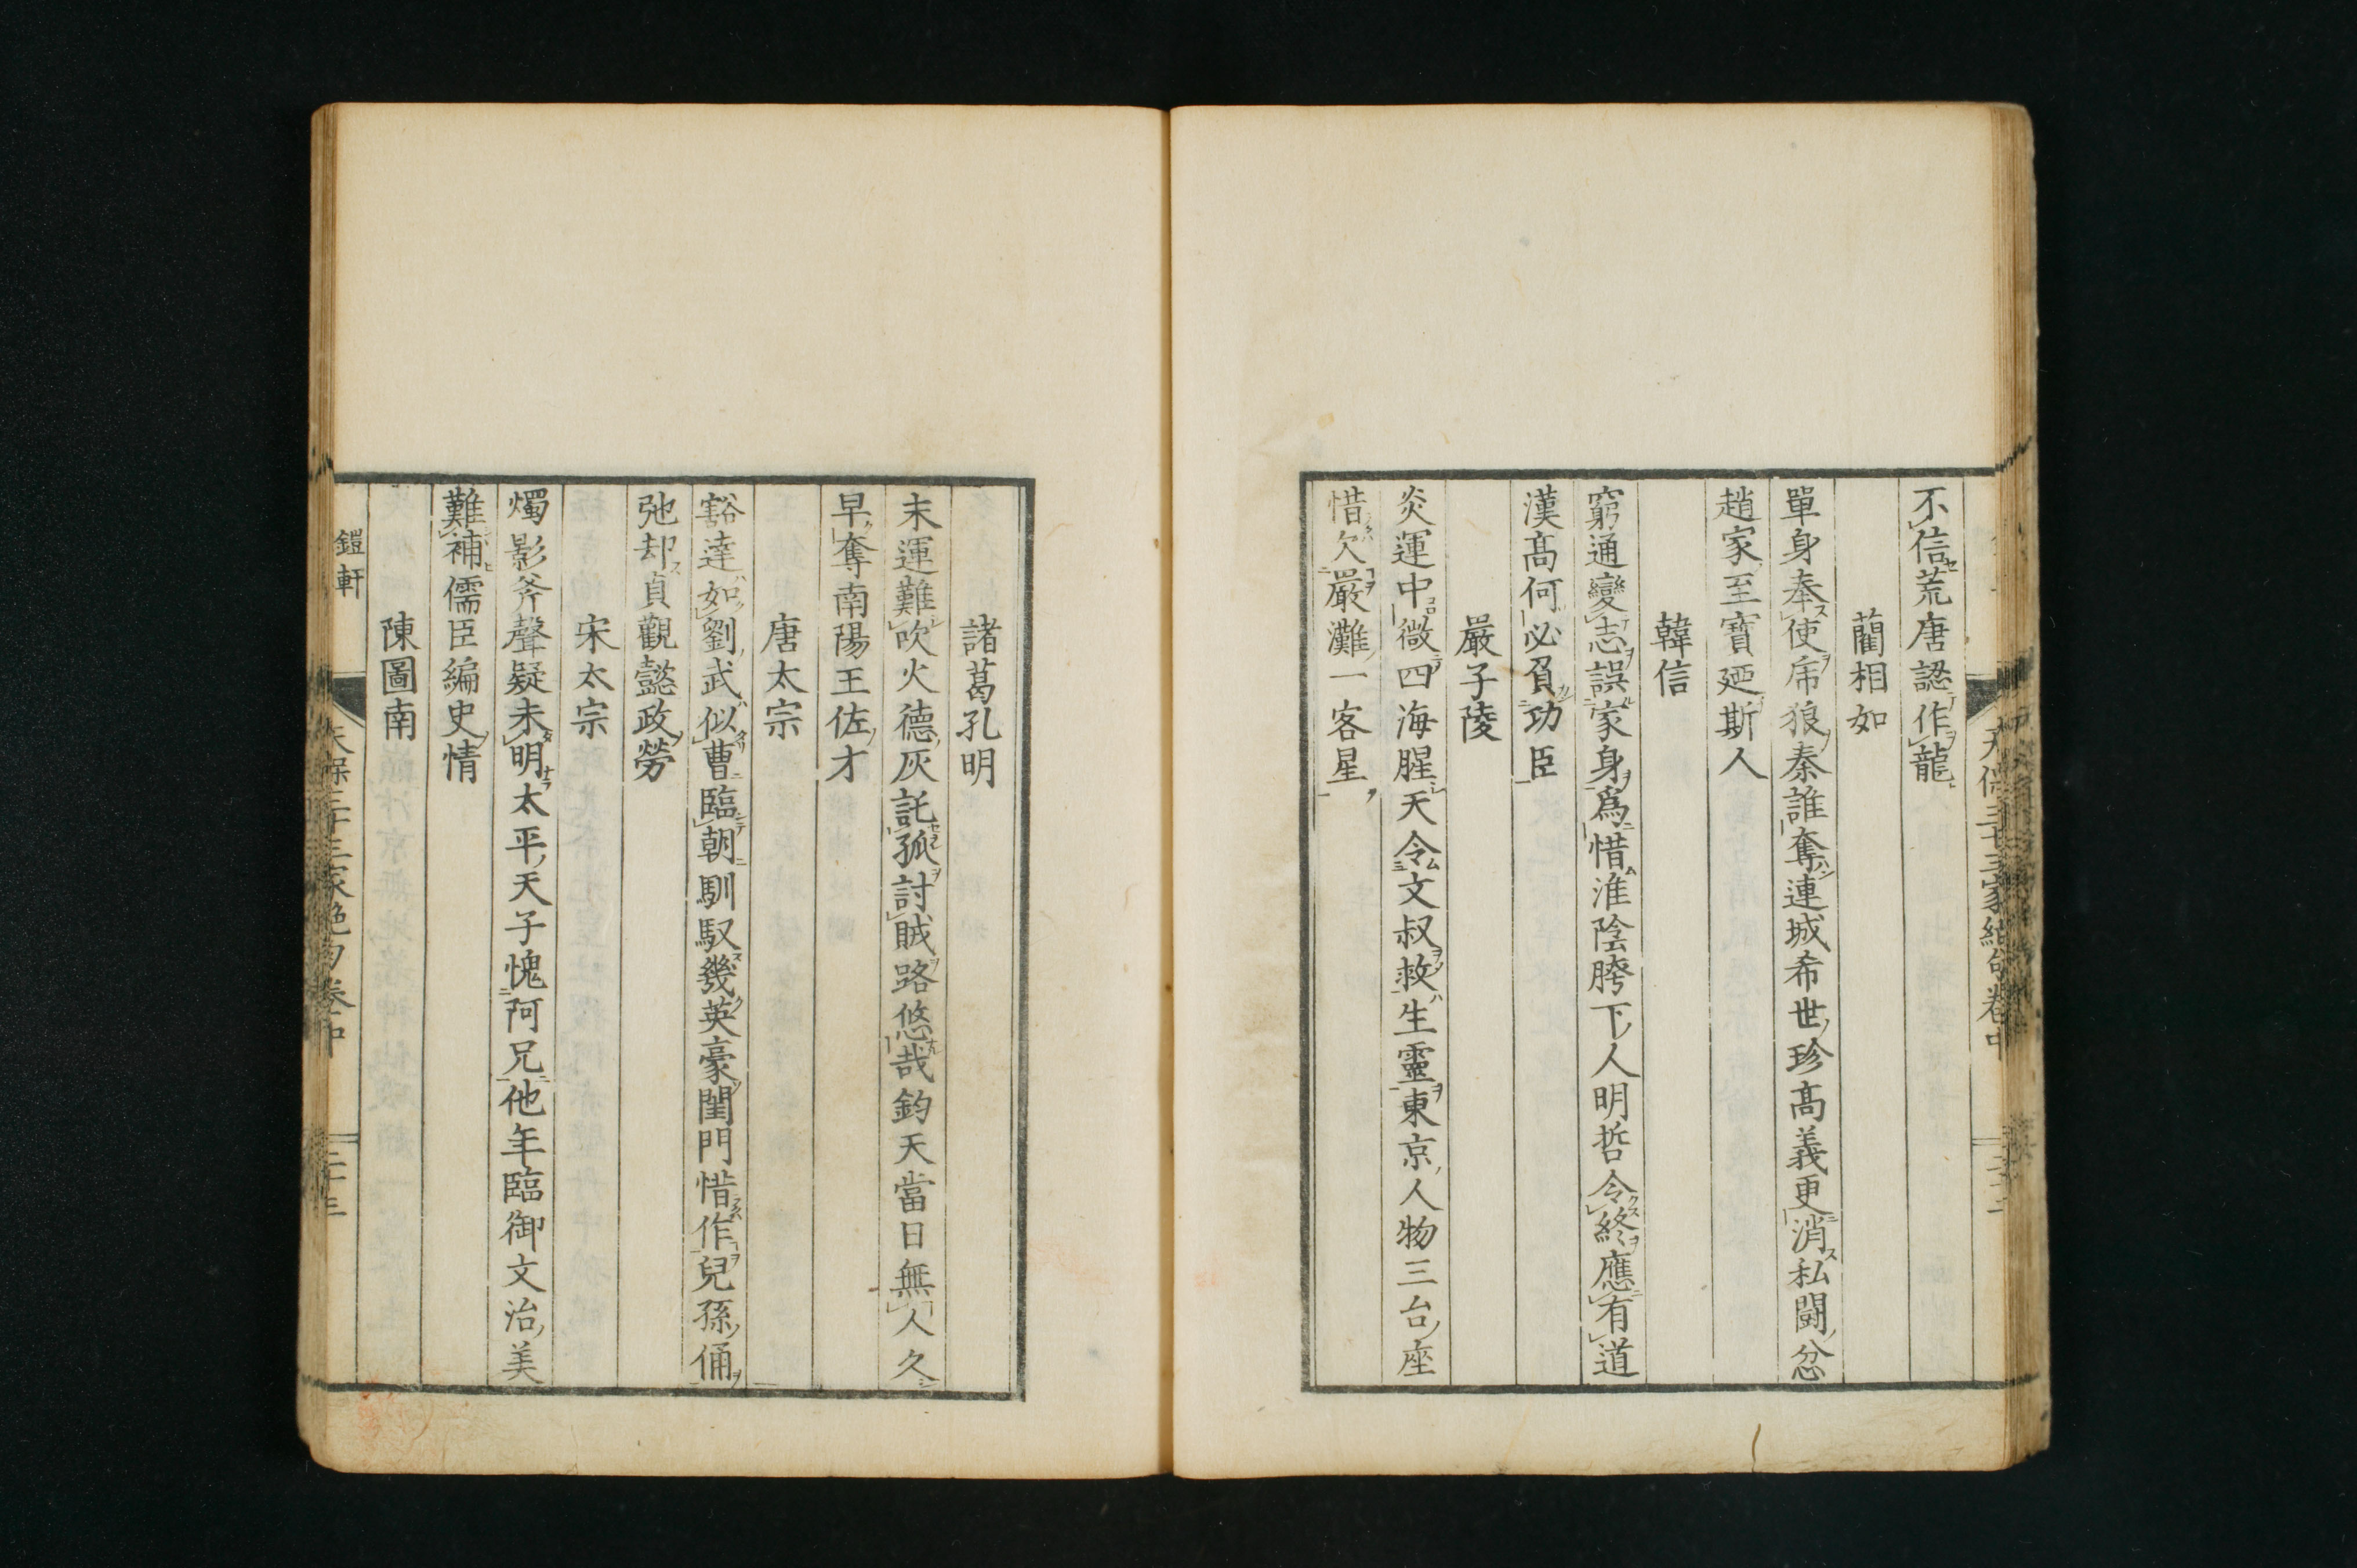 不信荒唐認作龍
藺相如
單身奉使虎狼秦誰奪連城希世珍高義更消私鬪忿
趙家至寶廼斯人
韓信
窮通變志誤家身爲惜淮陰胯下人明哲令終應有道
漢髙何必負功臣
嚴子陵
炎運中微四海腥天令文叔救生靈東京人物三台座
惜欠嚴灘一客星
諸葛孔明
末運難吹火德灰託孤討賊路悠哉鈞天當日無人久
早奪南陽王佐才
唐太宗
豁達如劉武似曹臨朝馴馭幾英豪閨門惜作兒孫俑
弛却貞觀懿政勞
宋太宗
燭影斧聲疑未明太平天子愧阿兄他年臨御文治美
難補儒臣編史情
陳圖南
鎧軒
天保三十三家絶句卷中